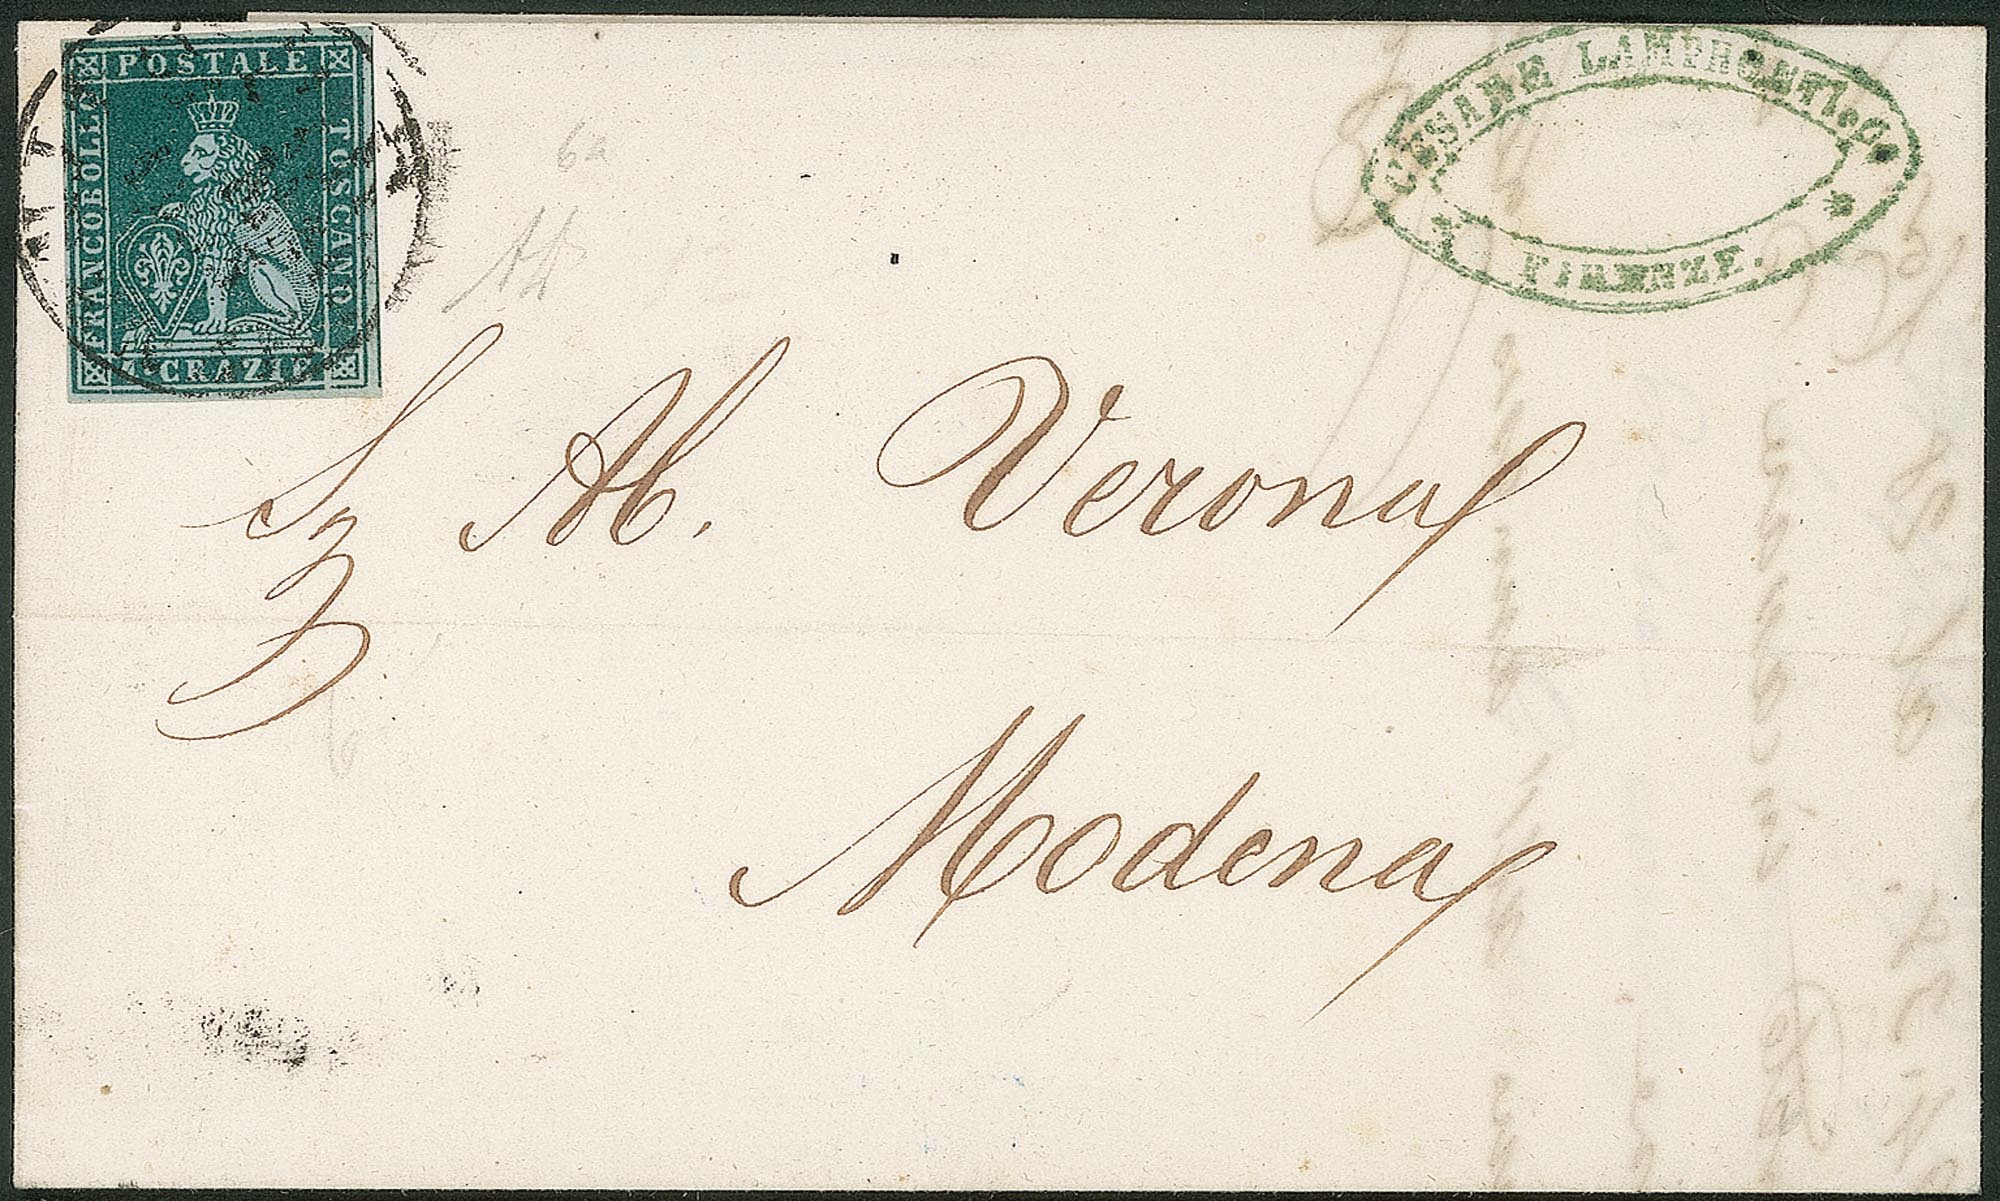 FRANCOBOLLO POSTALE TOSCANO
4 CRAZIE
CESARE LAMPRONTI & C°
FIRENZE.
6a
S. Ab. Verona
Modena